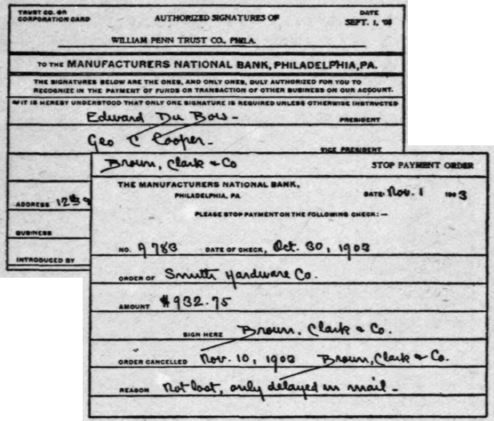 TRUST CO. OR
CORPORATION CARD
AUTHORIZED SIGNATURES OF
DATE
SEPT. 1, '03
WILLIAM PENN TRUST CO., PHILA.
TO THE MANUFACTURERS NATIONAL BANK, PHILADELPHIA, PA.
THE SIGNATURES BELOW ARE THE ONES, AND ONLY ONES, DULY AUTHORIZED FOR YOU TO
RECOGNIZE IN THE PAYMENT OF FUNDS OR TRANSACTION OF OTHER BUSINESS ON OUR ACCOUNT.
IT IS HEREBY UNDERSTOOD THAT ONLY ONE SIGNATURE IS REQUIRED UNLESS OTHERWISE INSTRUCTED
Edward Du Bois. PRESIDENT
Geo C Cooper. VICE PRESIDENT
ADDRESS 12th &
BUSINESS
INTRODUCED BY
Brown, Clark & Co STOP PAYMENT ORDER
THE MANUFACTURERS NATIONAL BANK,
PHILADELPHIA, PA.
DATE Nov. 1 1903
PLEASE STOP PAYMENT ON THE FOLLOWING CHECK:—
NO. 9783 DATE OF CHECK, Oct. 30, 1903
ORDER OF Smith Hardware Co.
AMOUNT $932.75
SIGN HERE Brown, Clark & Co.
ORDER CANCELLED Nov. 10, 1903 Brown, Clark & Co.
REASON Not lost, only delayed in mail -